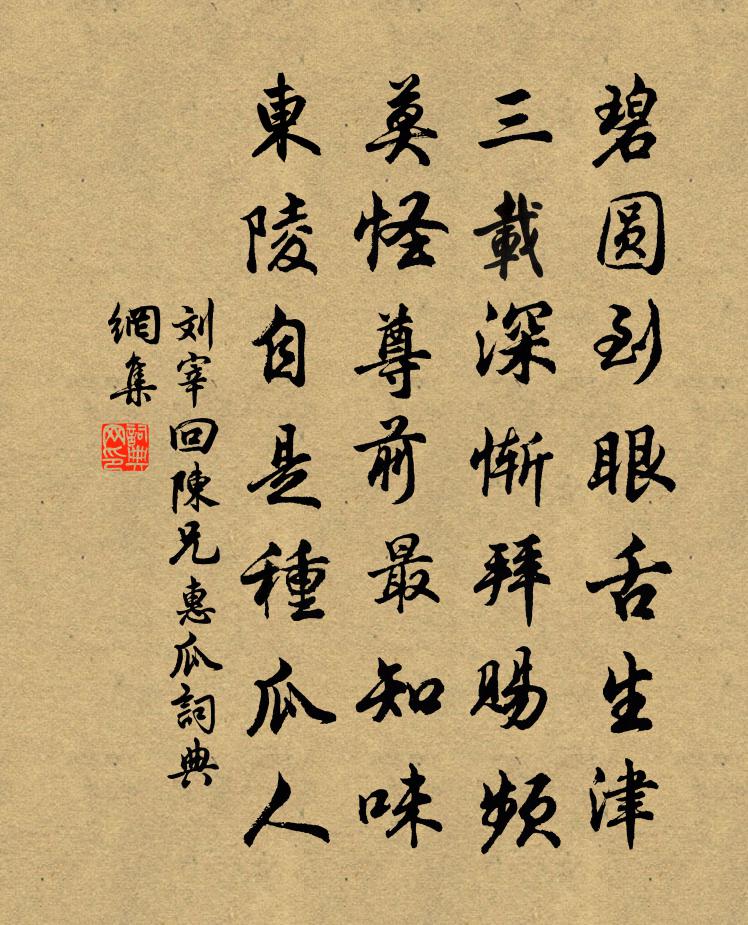 碧圆到眼舌生津
三載深慚拜賜頻
莫怪尊前最知味
東陵自是種瓜人
刘宰回陳兄惠瓜詞典
網集
詞典网印